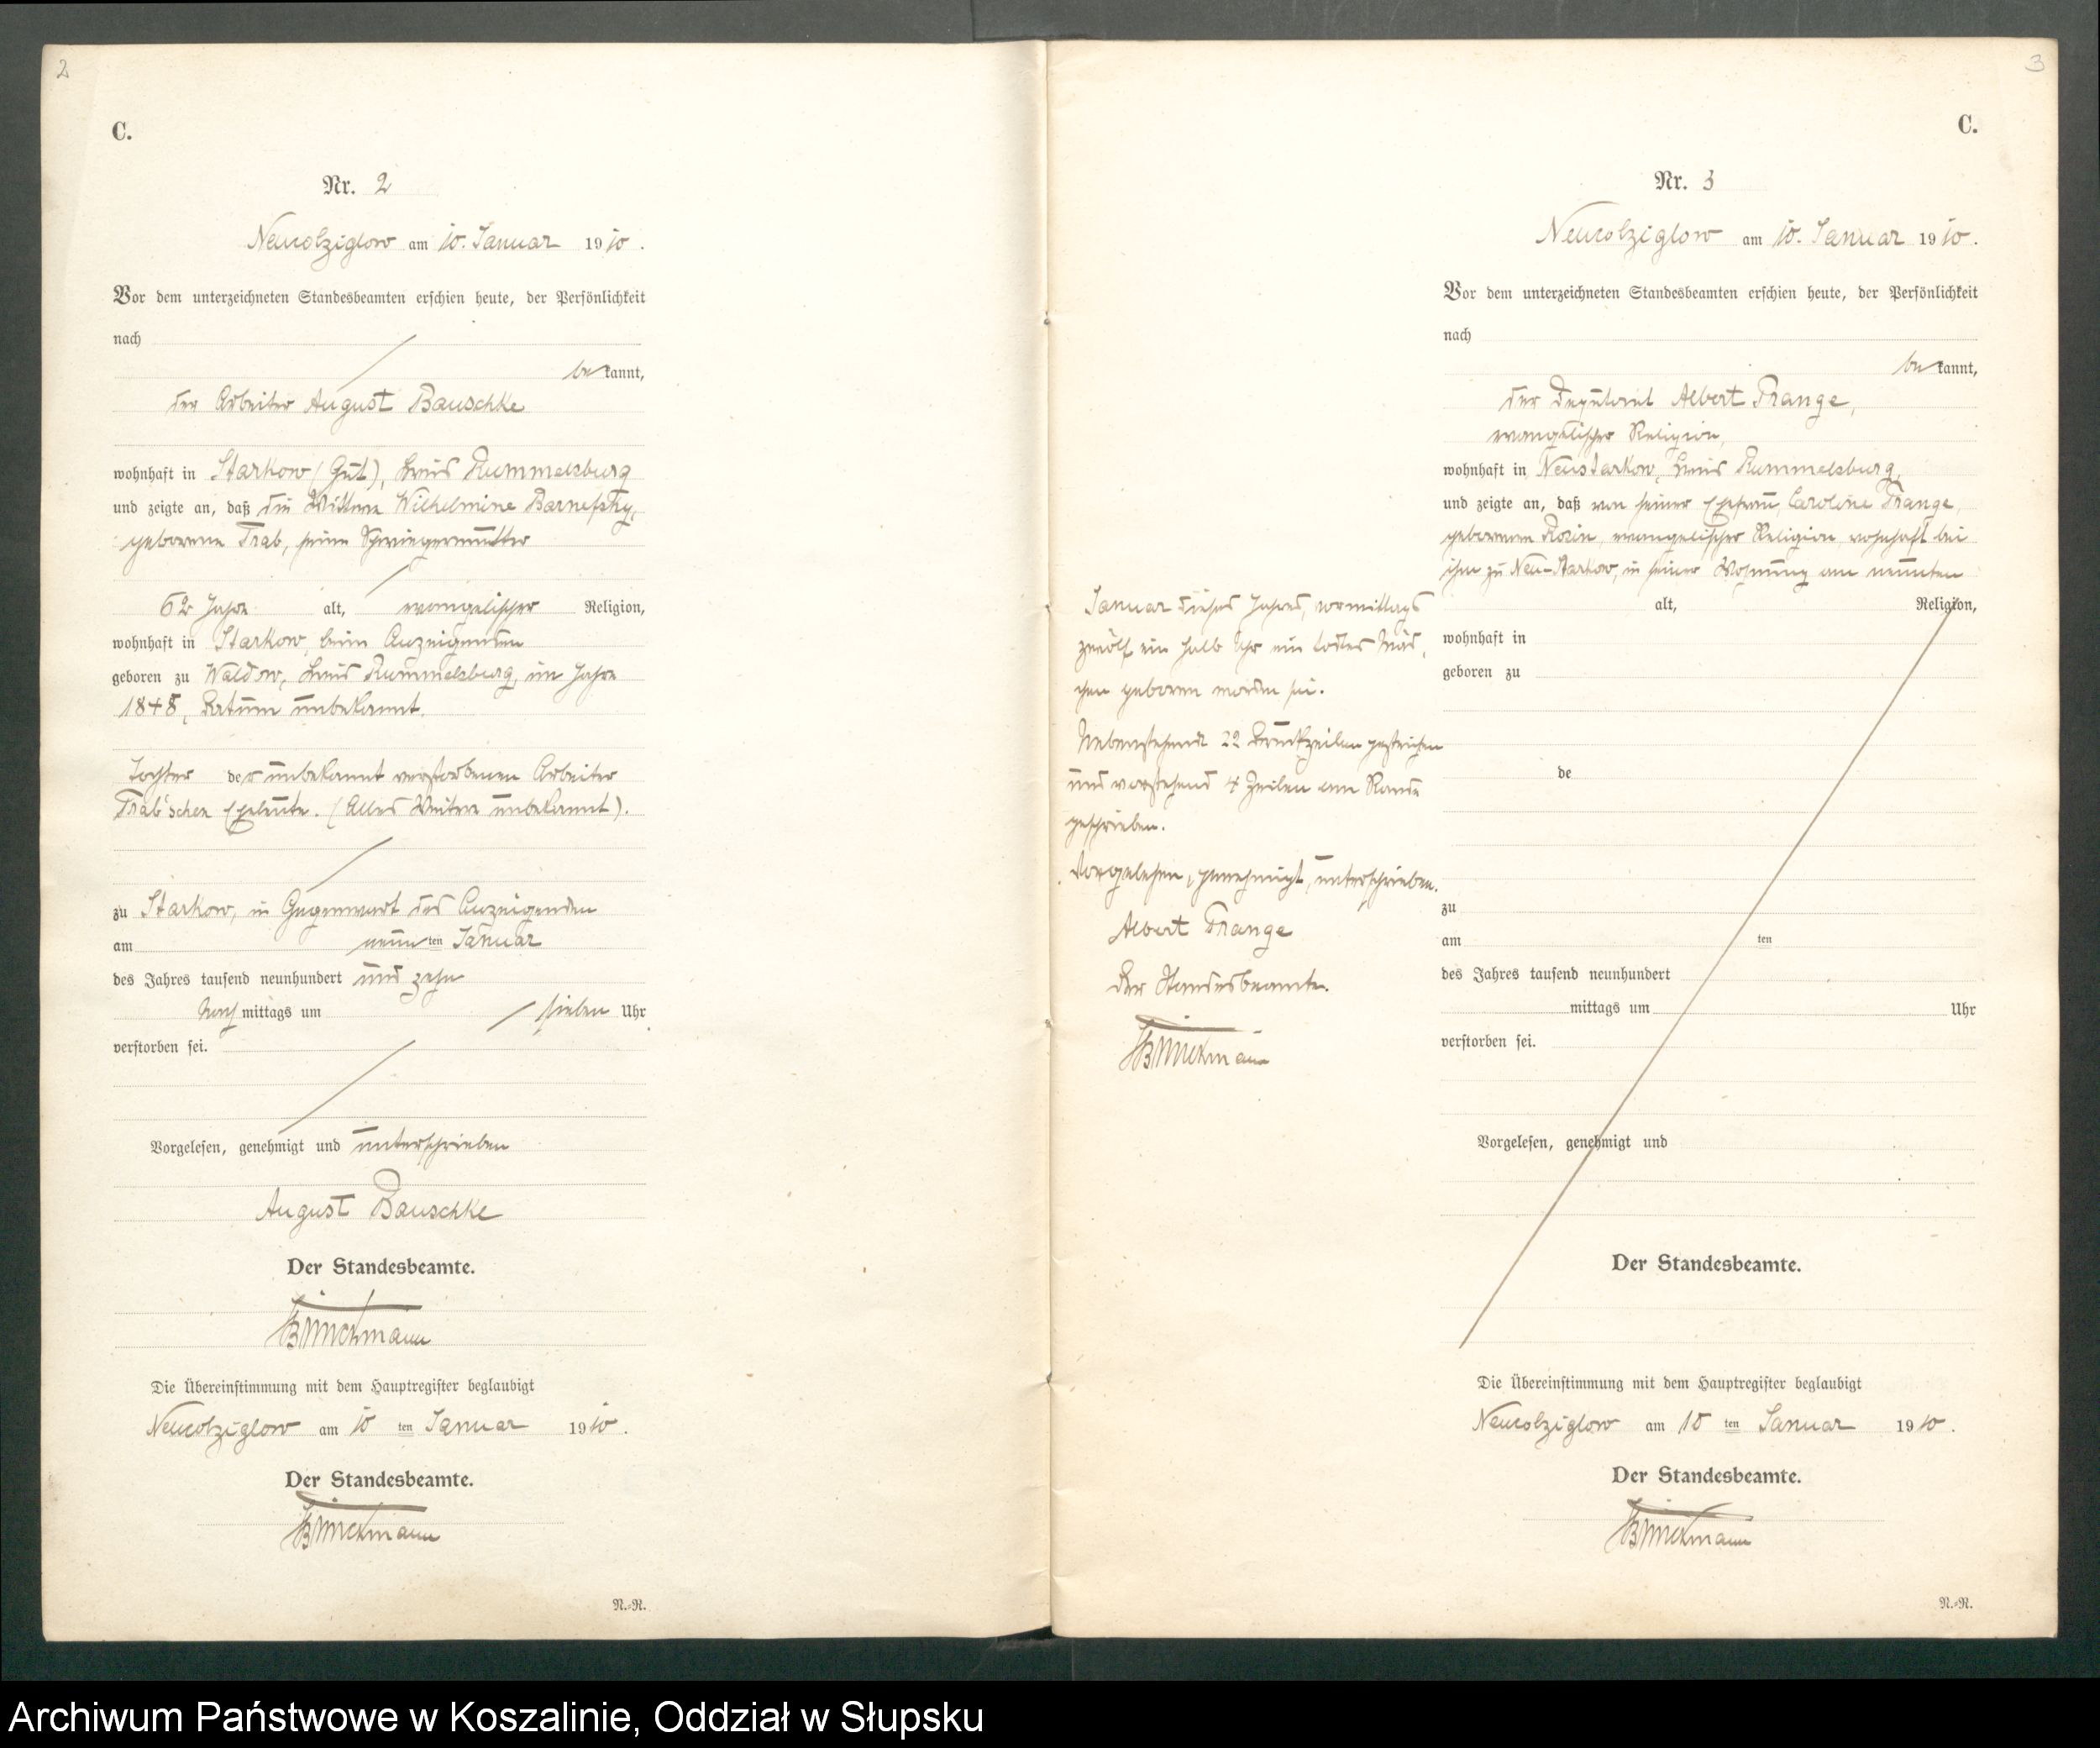 2
C.
Nr. 2
Neukolziglow am 10. Januar 1910.
Vor dem unterzeichneten Standesbeamten erschien heute, der Persönlichkeit
nach
be kannt,
der Arbeiter August Bauschke
wohnhaft in Starkow (Gut), Kreis Rummelsburg
und zeigte an, daß die Wittwe Wilhelmine Barnefsky,
geborene Trab, seine Schwiegermutter
62 Jahre alt, evangelischer Religion,
wohnhaft in Starkow, beim Anzeigenden
geboren zu Waldow, Kreis Rummelsburg, im Jahre
1848, Datum unbekannt.
Tochter der unbekannt verstorbenen Arbeiter
Trab'schen Eheleute. (Alles Weitere unbekannt).
zu Starkow, in Gegenwart des Anzeigenden
am neunten Januar
des Jahres tausend neunhundert und zehn
Nachmittags um sieben Uhr
verstorben sei.
Vorgelesen, genehmigt und unterschrieben
August Bauschke
Der Standesbeamte.
Brinckmann
Die Übereinstimmung mit dem Hauptregister beglaubigt
Neukolziglow am 10ten Januar 1910.
Der Standesbeamte.
Brinckmann
N.=R.
3
C.
Nr. 3
Neukolziglow am 10. Januar 1910.
Vor dem unterzeichneten Standesbeamten erschien heute, der Persönlichkeit
nach
be kannt,
der Deputant Albert Prange,
evangelischer Religion,
wohnhaft in Neustarkow, Kreis Rummelsburg,
und zeigte an, daß von seiner Ehefrau Caroline Prange,
geborenen Rosin, evangelischer Religion, wohnhaft bei
ihm zu Neu-Starkow, in seiner Wohnung am neunten
Januar dieses Jahres, vormittags
zwölf ein halb Uhr ein todtes Mäd,
chen geboren worden sei.
Nebenstehende 22 Druckzeilen gestrichen
und vorstehend 4 Zeilen am Rande
geschrieben.
Vorgelesen, genehmigt, unterschrieben.
Albert Prange
Der Standesbeamte.
Brinckmann
alt, Religion,
wohnhaft in
geboren zu
de
zu
am ten
des Jahres tausend neunhundert
mittags um Uhr
verstorben sei.
Vorgelesen, genehmigt und
Der Standesbeamte.
Die Übereinstimmung mit dem Hauptregister beglaubigt
Neukolziglow am 10 ten Januar 1910.
Der Standesbeamte.
Brinckmann
N.=R.
Archiwum Państwowe w Koszalinie, Oddział w Słupsku